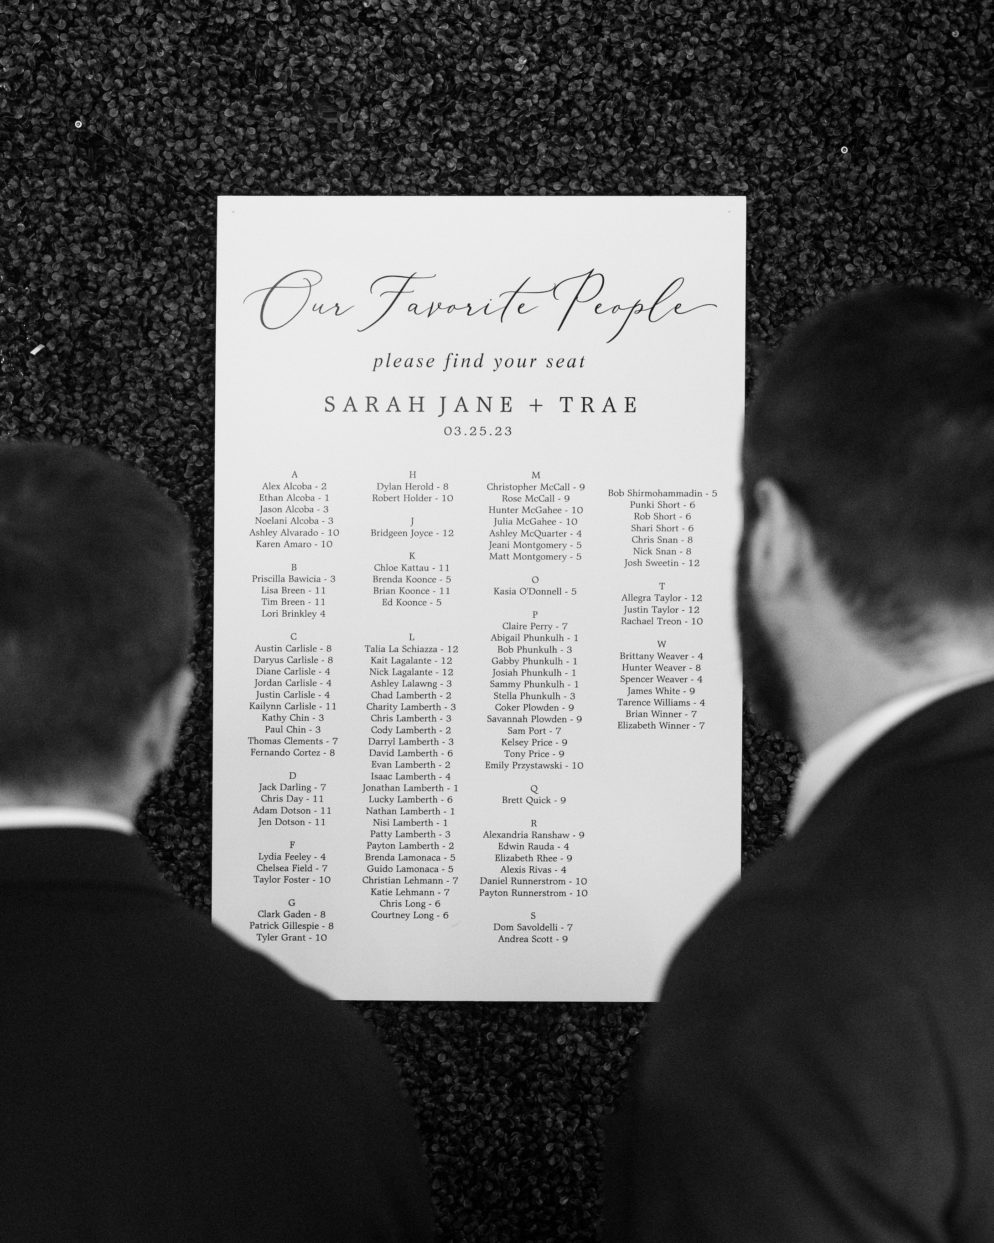 Our Favorite People
please find your seat
SARAH JANE + TRAE
03.25.23
A
Alex Alcoba - 2
Ethan Alcoba - 1
Jason Alcoba - 3
Noelani Alcoba - 3
Ashley Alvarado - 10
Karen Amaro - 10
B
Priscilla Bawicia - 3
Lisa Breen - 11
Tim Breen - 11
Lori Brinkley 4
C
Austin Carlisle - 8
Daryus Carlisle - 8
Diane Carlisle - 4
Jordan Carlisle - 4
Justin Carlisle - 4
Kailynn Carlisle - 11
Kathy Chin - 3
Paul Chin - 3
Thomas Clements - 7
Fernando Cortez - 8
D
Jack Darling - 7
Chris Day - 11
Adam Dotson - 11
Jen Dotson - 11
F
Lydia Feeley - 4
Chelsea Field - 7
Taylor Foster - 10
G
Clark Gaden - 8
Patrick Gillespie - 8
Tyler Grant - 10
H
Dylan Herold - 8
Robert Holder - 10
J
Bridgeen Joyce - 12
K
Chloe Kattau - 11
Brenda Koonce - 5
Brian Koonce - 11
Ed Koonce - 5
L
Talia La Schiazza - 12
Kait Lagalante - 12
Nick Lagalante - 12
Ashley Lalawng - 3
Chad Lamberth - 2
Charity Lamberth - 3
Chris Lamberth - 3
Cody Lamberth - 2
Darryl Lamberth - 3
David Lamberth - 6
Evan Lamberth - 2
Isaac Lamberth - 4
Jonathan Lamberth - 1
Lucky Lamberth - 6
Nathan Lamberth - 1
Nisi Lamberth - 1
Patty Lamberth - 3
Payton Lamberth - 2
Brenda Lamonaca - 5
Guido Lamonaca - 5
Christian Lehmann - 7
Katie Lehmann - 7
Chris Long - 6
Courtney Long - 6
M
Christopher McCall - 9
Rose McCall - 9
Hunter McGahee - 10
Julia McGahee - 10
Ashley McQuarter - 4
Jeani Montgomery - 5
Matt Montgomery - 5
O
Kasia O'Donnell - 5
P
Claire Perry - 7
Abigail Phunkulh - 1
Bob Phunkulh - 3
Gabby Phunkulh - 1
Josiah Phunkulh - 1
Sammy Phunkulh - 1
Stella Phunkulh - 3
Coker Plowden - 9
Savannah Plowden - 9
Sam Port - 7
Kelsey Price - 9
Tony Price - 9
Emily Przystawski - 10
Q
Brett Quick - 9
R
Alexandria Ranshaw - 9
Edwin Rauda - 4
Elizabeth Rhee - 9
Alexis Rivas - 4
Daniel Runnerstrom - 10
Payton Runnerstrom - 10
S
Dom Savoldelli - 7
Andrea Scott - 9
Bob Shirmohammadin - 5
Punki Short - 6
Rob Short - 6
Shari Short - 6
Chris Snan - 8
Nick Snan - 8
Josh Sweetin - 12
T
Allegra Taylor - 12
Justin Taylor - 12
Rachael Treon - 10
W
Brittany Weaver - 4
Hunter Weaver - 8
Spencer Weaver - 4
James White - 9
Tarence Williams - 4
Brian Winner - 7
Elizabeth Winner - 7